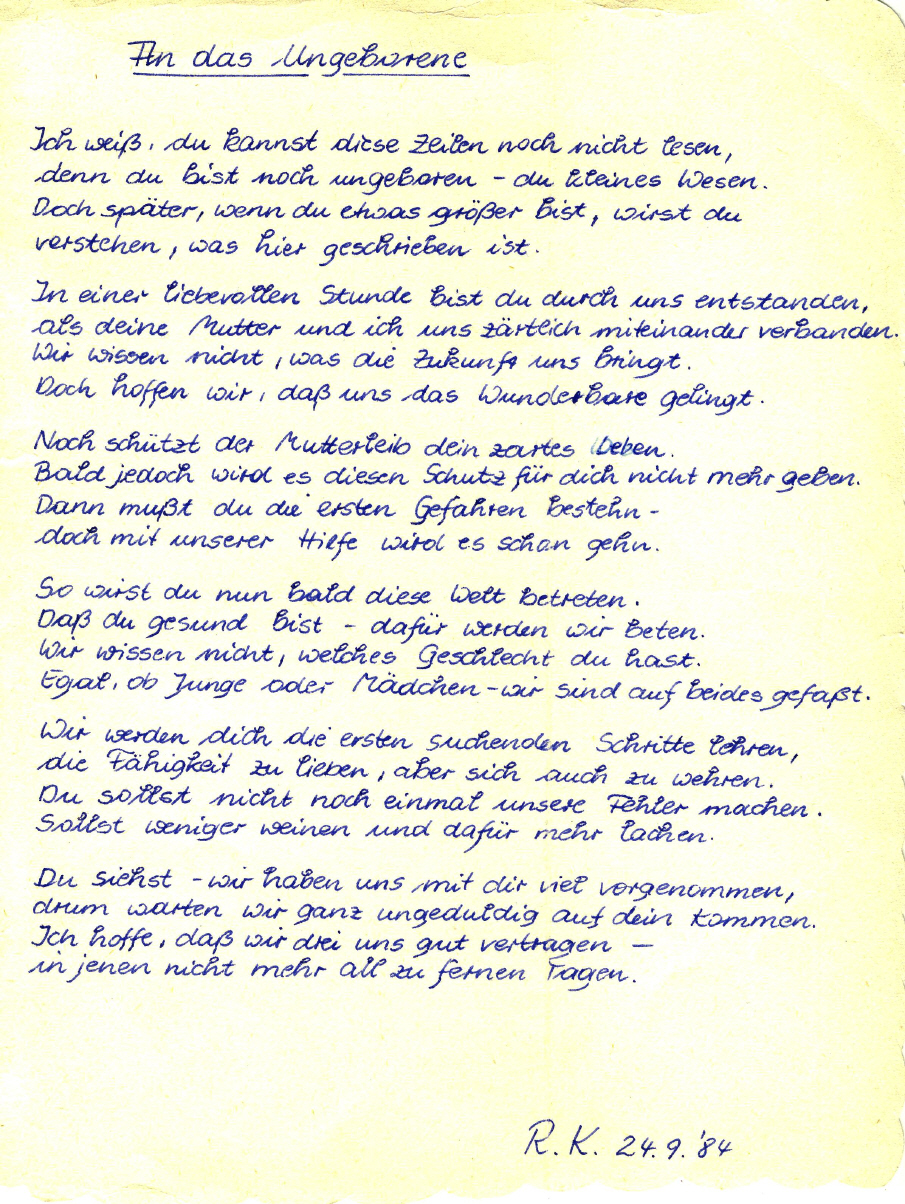 An das Ungeborene
Ich weiß, du kannst diese Zeilen noch nicht lesen,
denn du bist noch ungeboren - du kleines Wesen.
Doch später, wenn du etwas größer bist, wirst du
verstehen, was hier geschrieben ist.
In einer liebevollen Stunde bist du durch uns entstanden,
als deine Mutter und ich uns zärtlich miteinander verbanden.
Wir wissen nicht, was die Zukunft uns bringt.
Doch hoffen wir, daß uns das Wunderbare gelingt.
Noch schützt der Mutterleib dein zartes Leben.
Bald jedoch wird es diesen Schutz für dich nicht mehr geben.
Dann mußt du die ersten Gefahren bestehn -
doch mit unserer Hilfe wird es schon gehn.
So wirst du nun bald diese Welt betreten.
Daß du gesund bist - dafür werden wir beten.
Wir wissen nicht, welches Geschlecht du hast.
Egal, ob Junge oder Mädchen - wir sind auf beides gefaßt.
Wir werden dich die ersten suchenden Schritte lehren,
die Fähigkeit zu lieben, aber sich auch zu wehren.
Du sollst nicht noch einmal unsere Fehler machen.
Sollst weniger weinen und dafür mehr lachen.
Du siehst - wir haben uns mit dir viel vorgenommen,
drum warten wir ganz ungeduldig auf dein Kommen.
Ich hoffe, daß wir drei uns gut vertragen —
in jenen nicht mehr all zu fernen Tagen.
R.K. 24.9.'84